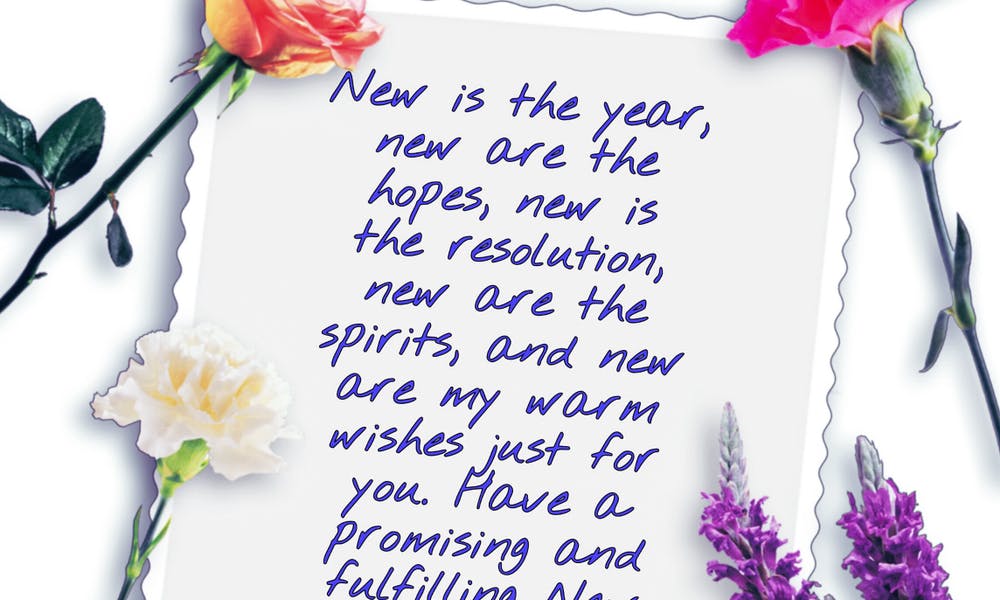 New is the year,
new are the
hopes, new is
the resolution,
new are the
spirits, and new
are my warm
wishes just for
you. Have a
promising and
fulfilling New